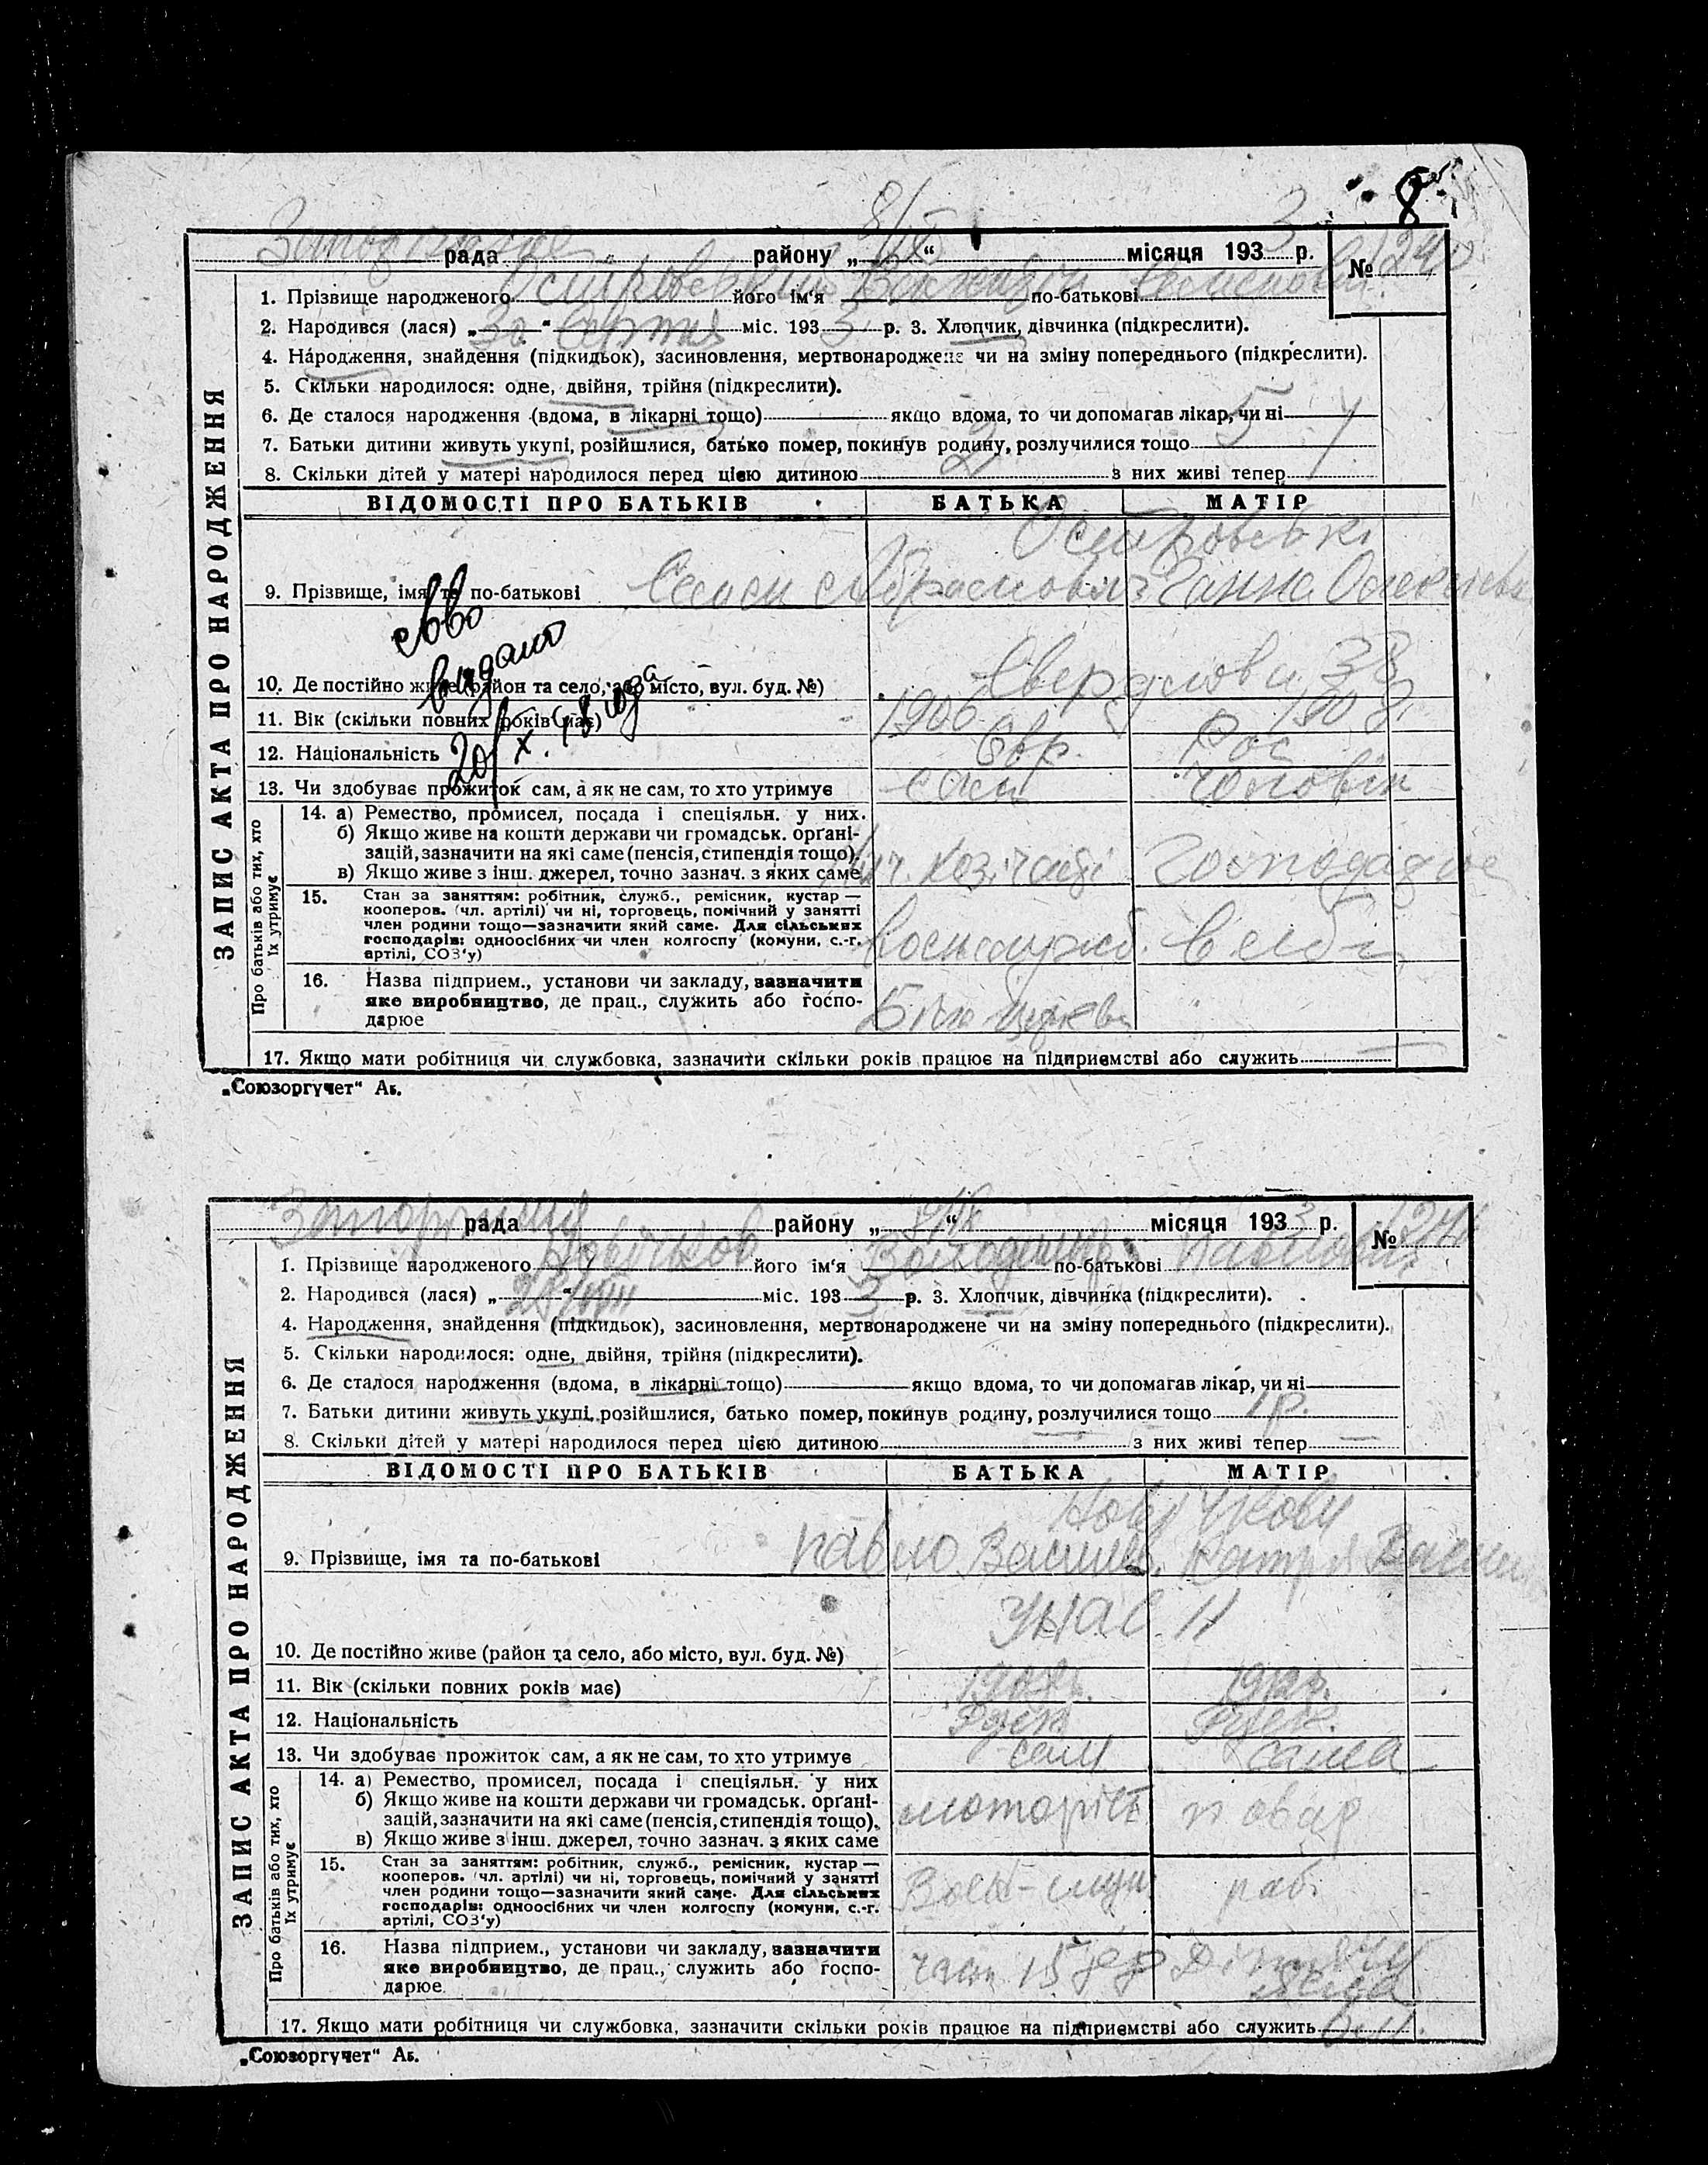 8
рада района „ 8/IX “ місяця 1933 р. № 1240
1. Прізвище народженого його ім'я по-батькові
2. Народився (лася) „30“ Серпня міс. 1933 р. 3. Хлопчик, дівчинка (підкреслити).
4. Народження, знайдення (підкидьок), засиновлення, мертвонароджене чи на зміну попереднього (підкреслити).
5. Скільки народилося: одне, двійня, трійня (підкреслити).
6. Де сталося народження (вдома, в лікарні тощо) якщо вдома, то чи допомагав лікар, чи ні
7. Батьки дитини живуть укупі, розійшлися, батько помер, покинув родину, розлучилися тощо 5
8. Скільки дітей у матері народилося перед цією дитиною 2 з них живі тепер
ЗАПИС АКТА ПРО НАРОДЖЕННЯ
ВІДОМОСТІ ПРО БАТЬКІВ БАТЬКА МАТІР
Островські
9. Прізвище, імя та по-батькові Семен Абрамович Ганна Олексіївна
видано
10. Де постійно живе (район та село, або місто, вул. буд. №) Свердлова 38
11. Вік (скільки повних років має) 1906 1908
12. Національність Євр. Рос
13. Чи здобуває прожиток сам, а як не сам, то хто утримує сам чоловік
Про батьків або тих, хто їх утримує
14. а) Ремество, промисел, посада і спеціяльн. у них.
б) Якщо живе на кошти держави чи громадськ. орґані-
зацій, зазначити на які саме (пенсія, стипендія тощо).
в) Якщо живе з інш. джерел, точно зазнач. з яких саме
15. Стан за заняттям: робітник, служб., ремісник, кустар —
кооперов. (чл. артілі) чи ні, торговець, помічний у занятті
член родини тощо—зазначити який саме. Для сільських
господарів: одноосібних чи член колгоспу (комуни, с.-г.
артілі, СОЗ'у)
16. Назва підприєм., установи чи закладу, зазначити
яке виробництво, де прац., служить або госпо-
дарює
17. Якщо мати робітниця чи службовка, зазначити скільки років працює на підприємстві або служить
„Союзоргучет“ Аб.
рада району „ “ місяця 1933 р. № 1241
1. Прізвище народженого Новічков його ім'я Володимир по-батькові Павлович
2. Народився (лася) „ “ міс. 1933 р. 3. Хлопчик, дівчинка (підкреслити).
4. Народження, знайдення (підкидьок), засиновлення, мертвонароджене чи на зміну попереднього (підкреслити).
5. Скільки народилося: одне, двійня, трійня (підкреслити).
6. Де сталося народження (вдома, в лікарні тощо) якщо вдома, то чи допомагав лікар, чи ні
7. Батьки дитини живуть укупі, розійшлися, батько помер, покинув родину, розлучилися тощо 1р.
8. Скільки дітей у матері народилося перед цією дитиною з них живі тепер
ЗАПИС АКТА ПРО НАРОДЖЕННЯ
ВІДОМОСТІ ПРО БАТЬКІВ БАТЬКА МАТІР
Новічкови
9. Прізвище, імя та по-батькові Павло Василів.
10. Де постійно живе (район та село, або місто, вул. буд. №)
11. Вік (скільки повних років має)
12. Національність Руск Руск.
13. Чи здобуває прожиток сам, а як не сам, то хто утримує сам сама
Про батьків або тих, хто їх утримує
14. а) Ремество, промисел, посада і спеціяльн. у них
б) Якщо живе на кошти держави чи громадськ. орґані-
зацій, зазначити на які саме (пенсія, стипендія тощо).
в) Якщо живе з інш. джерел, точно зазнач. з яких саме
моторіст повар
15. Стан за заняттям: робітник, служб., ремісник, кустар —
кооперов. (чл. артілі) чи ні, торговець, помічний у занятті
член родини тощо—зазначити який саме. Для сільських
господарів: одноосібних чи член колгоспу (комуни, с.-г.
артілі, СОЗ'у)
раб.
16. Назва підприєм., установи чи закладу, зазначити
яке виробництво, де прац., служить або госпо-
дарює
17. Якщо мати робітниця чи службовка, зазначити скільки років працює на підприємстві або служить
„Союзоргучет“ Аб.